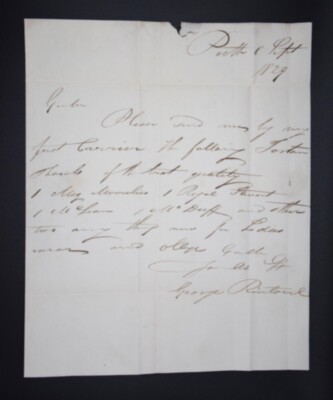 Perth 6 Sept
1829
Gentn
Please send me by very
first Carrier the following Tartan
Shawls of the best quality
1 1 Royal Stewart
1 McLean 1 McDuff and other
two any thing new for Ladies
wear and oblige Gentn
Your Ob St
George Rintoul